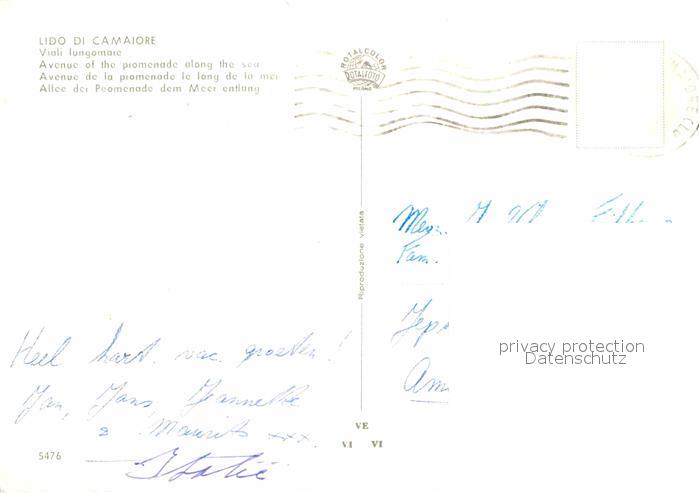 LIDO DI CAMAIORE
Viali lungomare
Avenue of the promenade along the sea
Avenue de la promenade le long de la mer
Allee der Peomenade dem Meer entlang
ROTALCOLOR
ROTALFOTO
MILANO
Riproduzione vietata
Fam.
privacy protection
Datenschutz
Heel hart. vac. groeten!
Jan, Jans, Jeannette
& Maurits xxx.
Italië
5476
VE
VI VI